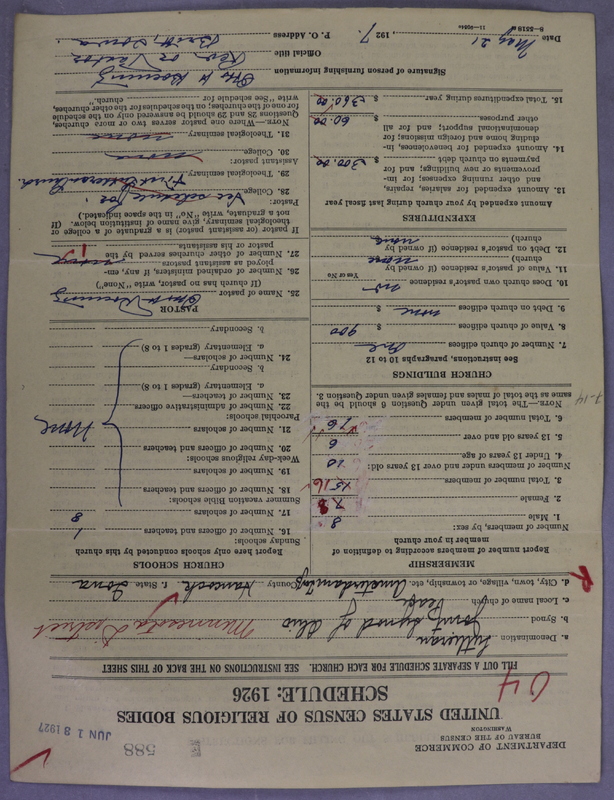 DEPARTMENT OF COMMERCE
BUREAU OF THE CENSUS
WASHINGTON
588
JUN 18 1927
UNITED STATES CENSUS OF RELIGIOUS BODIES
SCHEDULE: 1926
64
FILL OUT A SEPARATE SCHEDULE FOR EACH CHURCH. SEE INSTRUCTIONS ON THE BACK OF THIS SHEET
a. Denomination Lutheran
b. Synod Joint Synod of Ohio Minnesota District
c. Local name of church Peace
d. City, town, village, or township, etc. Amsterdam twp County Hancock r. State Iowa
MEMBERSHIP
Report number of members according to definition of member in your church
Number of members, by sex:
1. Male 8
2. Female 7 8
3. Total number of members 15 16
Number of members under and over 13 years old:
4. Under 13 years of age 10
5. 13 years old and over 6
6. Total number of members 16
NOTE.—The total given under Question 6 should be the same as the total of males and females given under Question 3.
7-14
CHURCH BUILDINGS
See instructions, paragraphs 10 to 12
7. Number of church edifices One
8. Value of church edifices $ 900
9. Debt on church edifices $ none
10. Does church own pastor's residence no
Yes or No
11. Value of pastor's residence (if owned by church) none
12. Debt on pastor's residence (if owned by church) none
EXPENDITURES
Amount expended by your church during last fiscal year
13. Amount expended for salaries, repairs, and other running expenses; for improvements or new buildings; and for payments on church debt $ 300.00
14. Amount expended for benevolences, including home and foreign missions; for denominational support; and for all other purposes $ 60.00
15. Total expenditures during year $ 360.00
CHURCH SCHOOLS
Report here only schools conducted by this church
Sunday schools:
16. Number of officers and teachers 1
17. Number of scholars 8
Summer vacation Bible schools:
18. Number of officers and teachers
19. Number of scholars
Week-day religious schools:
20. Number of officers and teachers
21. Number of scholars
None
Parochial schools:
22. Number of administrative officers
23. Number of teachers—
a. Elementary (grades 1 to 8)
b. Secondary
24. Number of scholars—
a. Elementary (grades 1 to 8)
b. Secondary
PASTOR
25. Name of pastor
(If church has no pastor, write "None")
26. Number of ordained ministers, if any, employed as assistant pastors
27. Number of other churches served by the pastor or his assistants 1
If pastor (or assistant pastor) is a graduate of a college or theological seminary, give name of institution below. (If not a graduate write "No" in the space indicated.)
Pastor:
28. College See schedule for
29. Theological seminary First Lutheran Church
Assistant pastor:
30. College none
31. Theological seminary none
NOTE.—Where one pastor serves two or more churches, Questions 28 and 29 should be answered only on the schedule for one of the churches; on the schedules for the other churches, write "See schedule for church."
Signature of person furnishing information
Official title Rev. or Pastor
P. O. Address Britt, Iowa.
Date May 21, 1927.